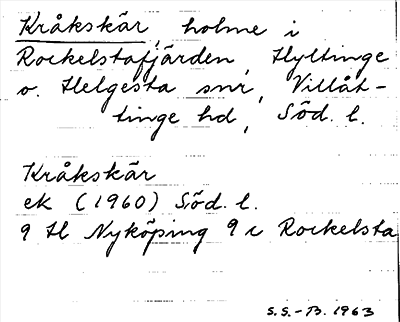 Kråkskär, holme i
Rockelstafjärden, Hyltinge
o. Helgesta snr, Villåt-
tinge hd, Söd. l.
Kråkskär
ek (1960) Söd. l.
9 H Nyköping 9 c Rockelsta
S.S.-B. 1963